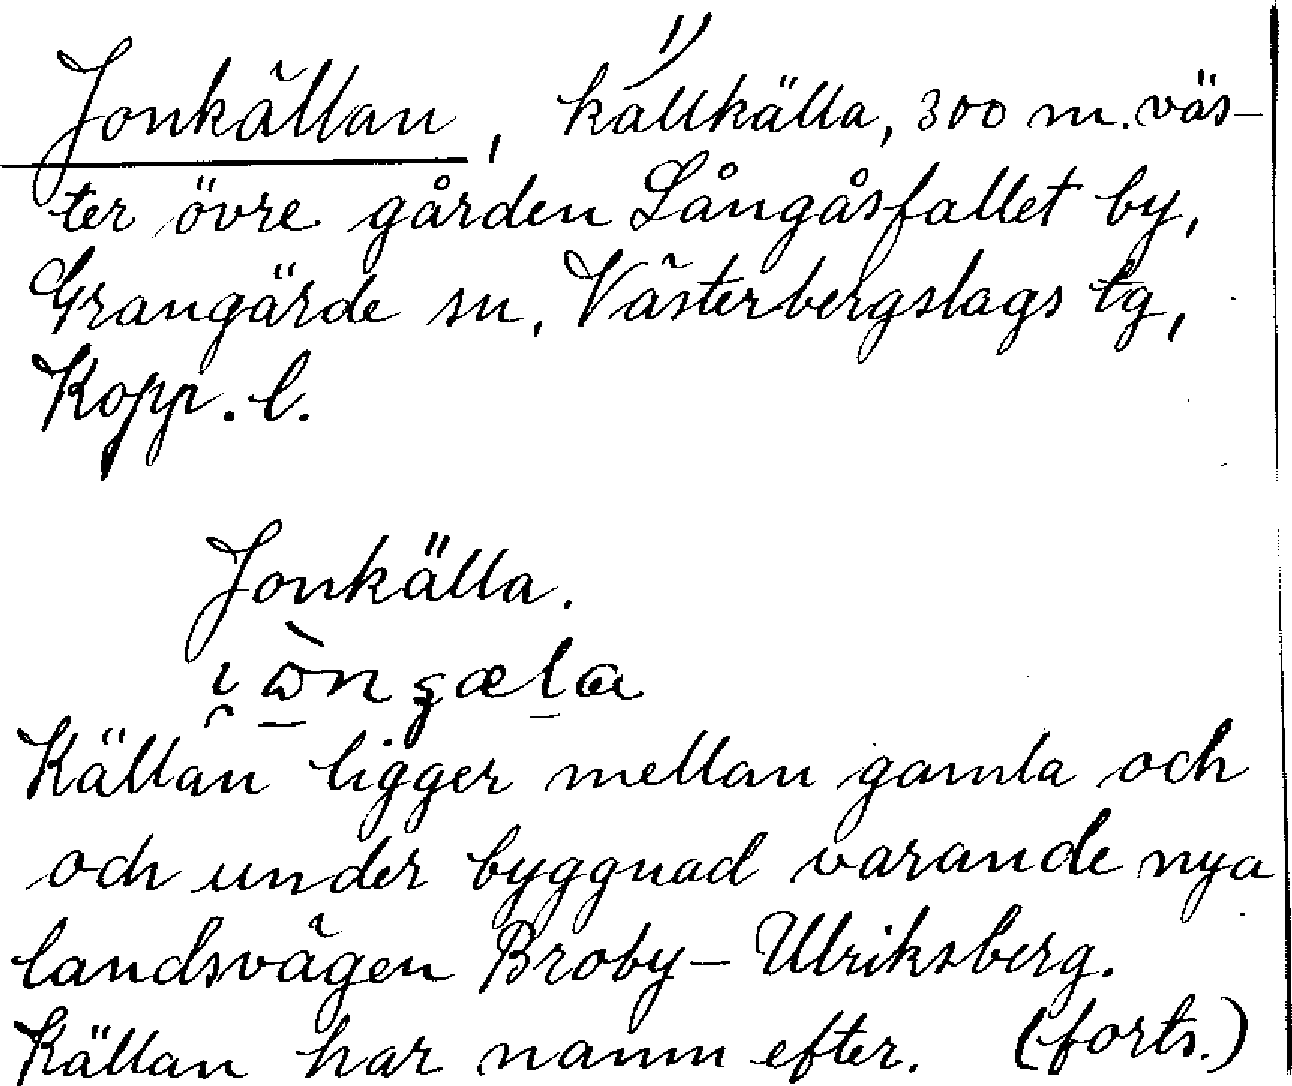 Jonkällan, kallkälla, 300 m. väs-
ter övre gården Långåsfallet by,
Grangärde sn, Västerbergslags tg,
Kopp. l.
Jonkälla.
Källan ligger mellan gamla och
och under byggnad varande nya
landsvägen Broby – Ulriksberg.
Källan har namn efter. (forts.)